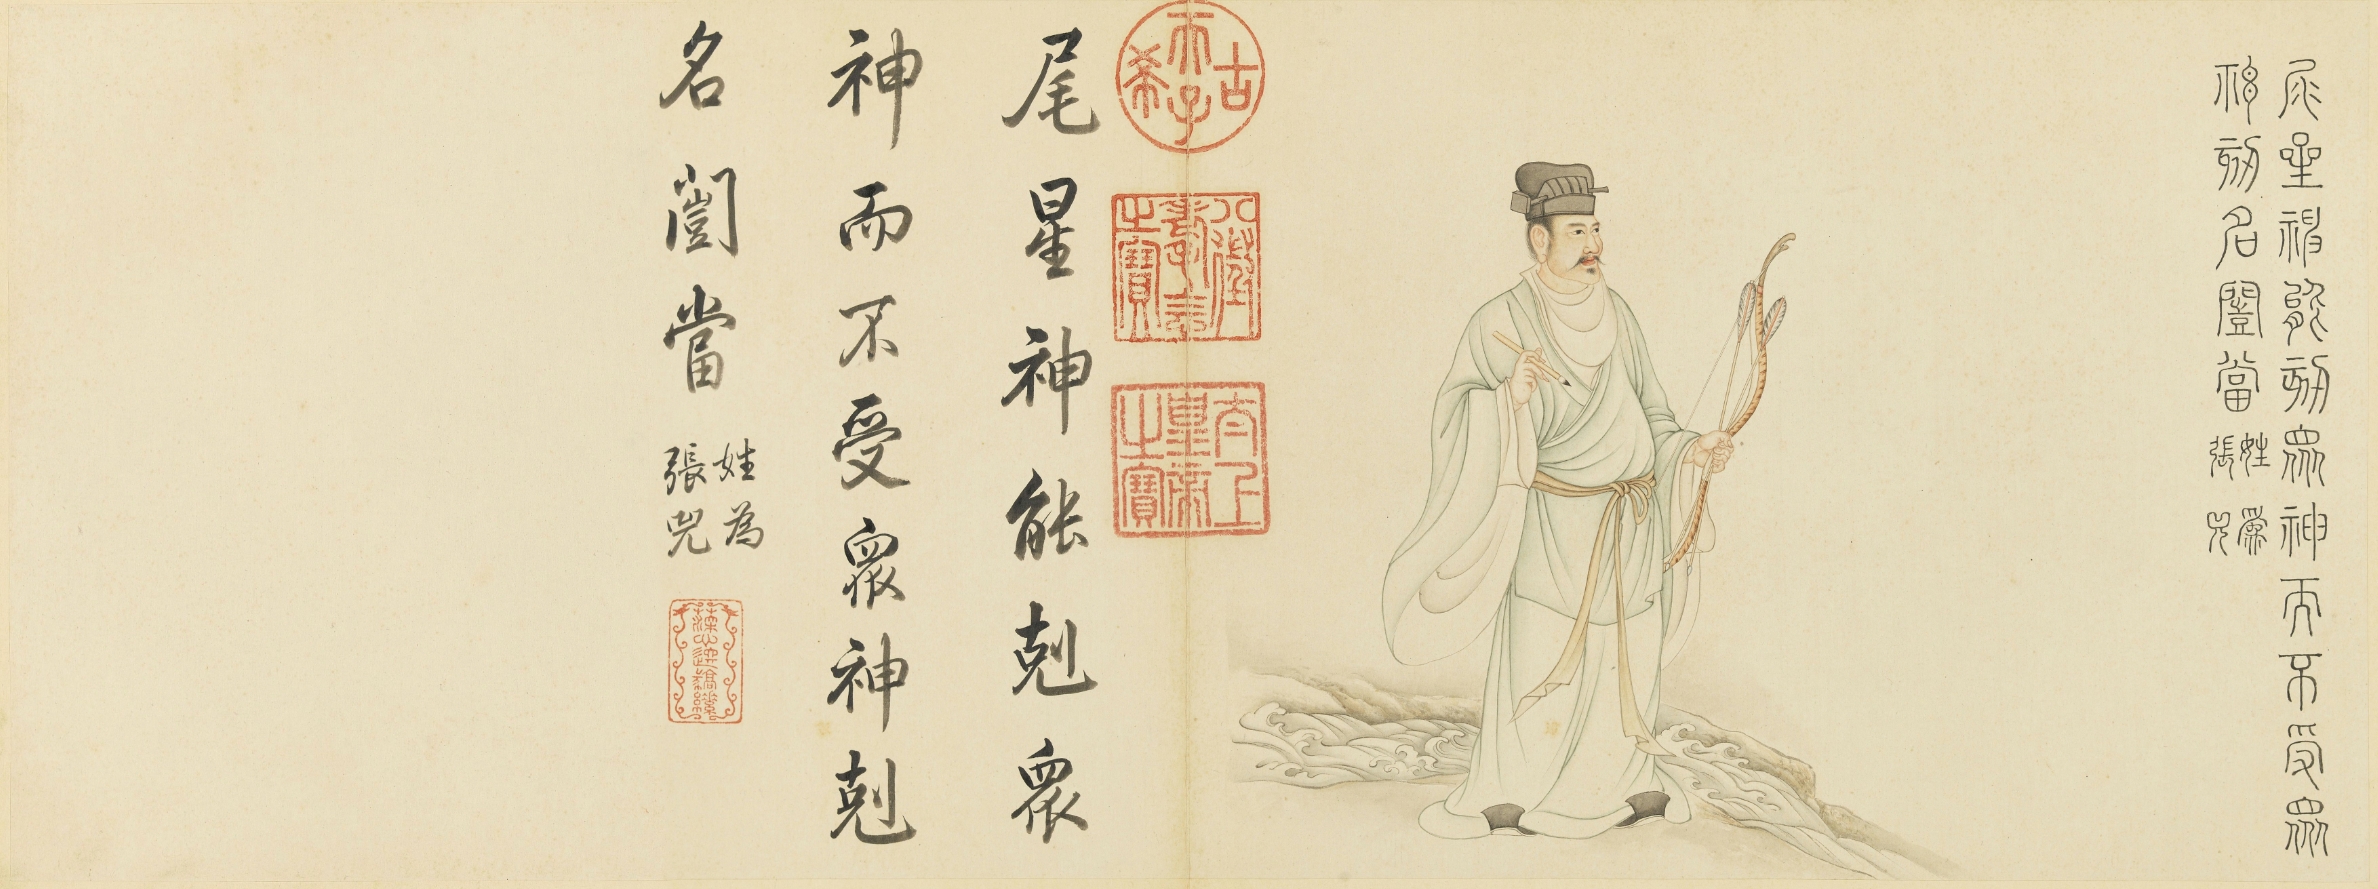 尾星神能剋眾神而不受眾
神剋名闓當
姓為
張兕
古希天子
八徵耄念之寶
太上皇帝之寶
尾星神能剋眾
神而不受眾神剋
名闓當
姓為
張兕